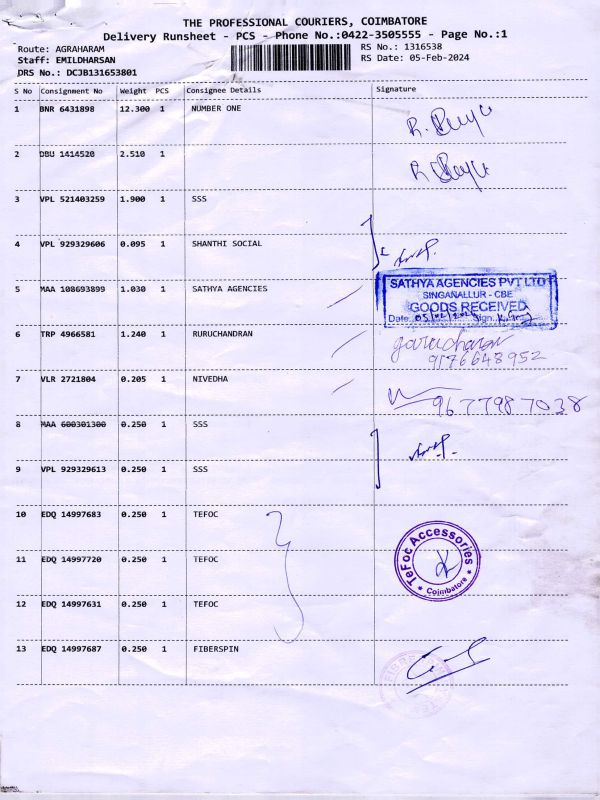 THE PROFESSIONAL COURIERS, COIMBATORE
Delivery Runsheet - PCS - Phone No.:0422-3505555 - Page No.:1
Route: AGRAHARAM
Staff: EMILDHARSAN
DRS No.: DCJB131653801
RS No.: 1316538
RS Date: 05-Feb-2024
S No Consignment No Weight PCS Consignee Details Signature
1 BNR 6431898 12.300 1 NUMBER ONE
2 DBU 1414520 2.510 1
3 VPL 521403259 1.900 1 SSS
4 VPL 929329606 0.095 1 SHANTHI SOCIAL
5 MAA 108693899 1.030 1 SATHYA AGENCIES
SATHYA AGENCIES PVT LTD
SINGANALLUR - CBE
GOODS RECEIVED
Date: 05/02/2024 Sign:
6 TRP 4966581 1.240 1 RURUCHANDRAN
9176648952
7 VLR 2721804 0.205 1 NIVEDHA
9677987038
8 MAA 600301300 0.250 1 SSS
9 VPL 929329613 0.250 1 SSS
10 EDQ 14997683 0.250 1 TEFOC
11 EDQ 14997720 0.250 1 TEFOC
TeFoc Accessories
* Coimbatore *
12 EDQ 14997631 0.250 1 TEFOC
13 EDQ 14997687 0.250 1 FIBERSPIN